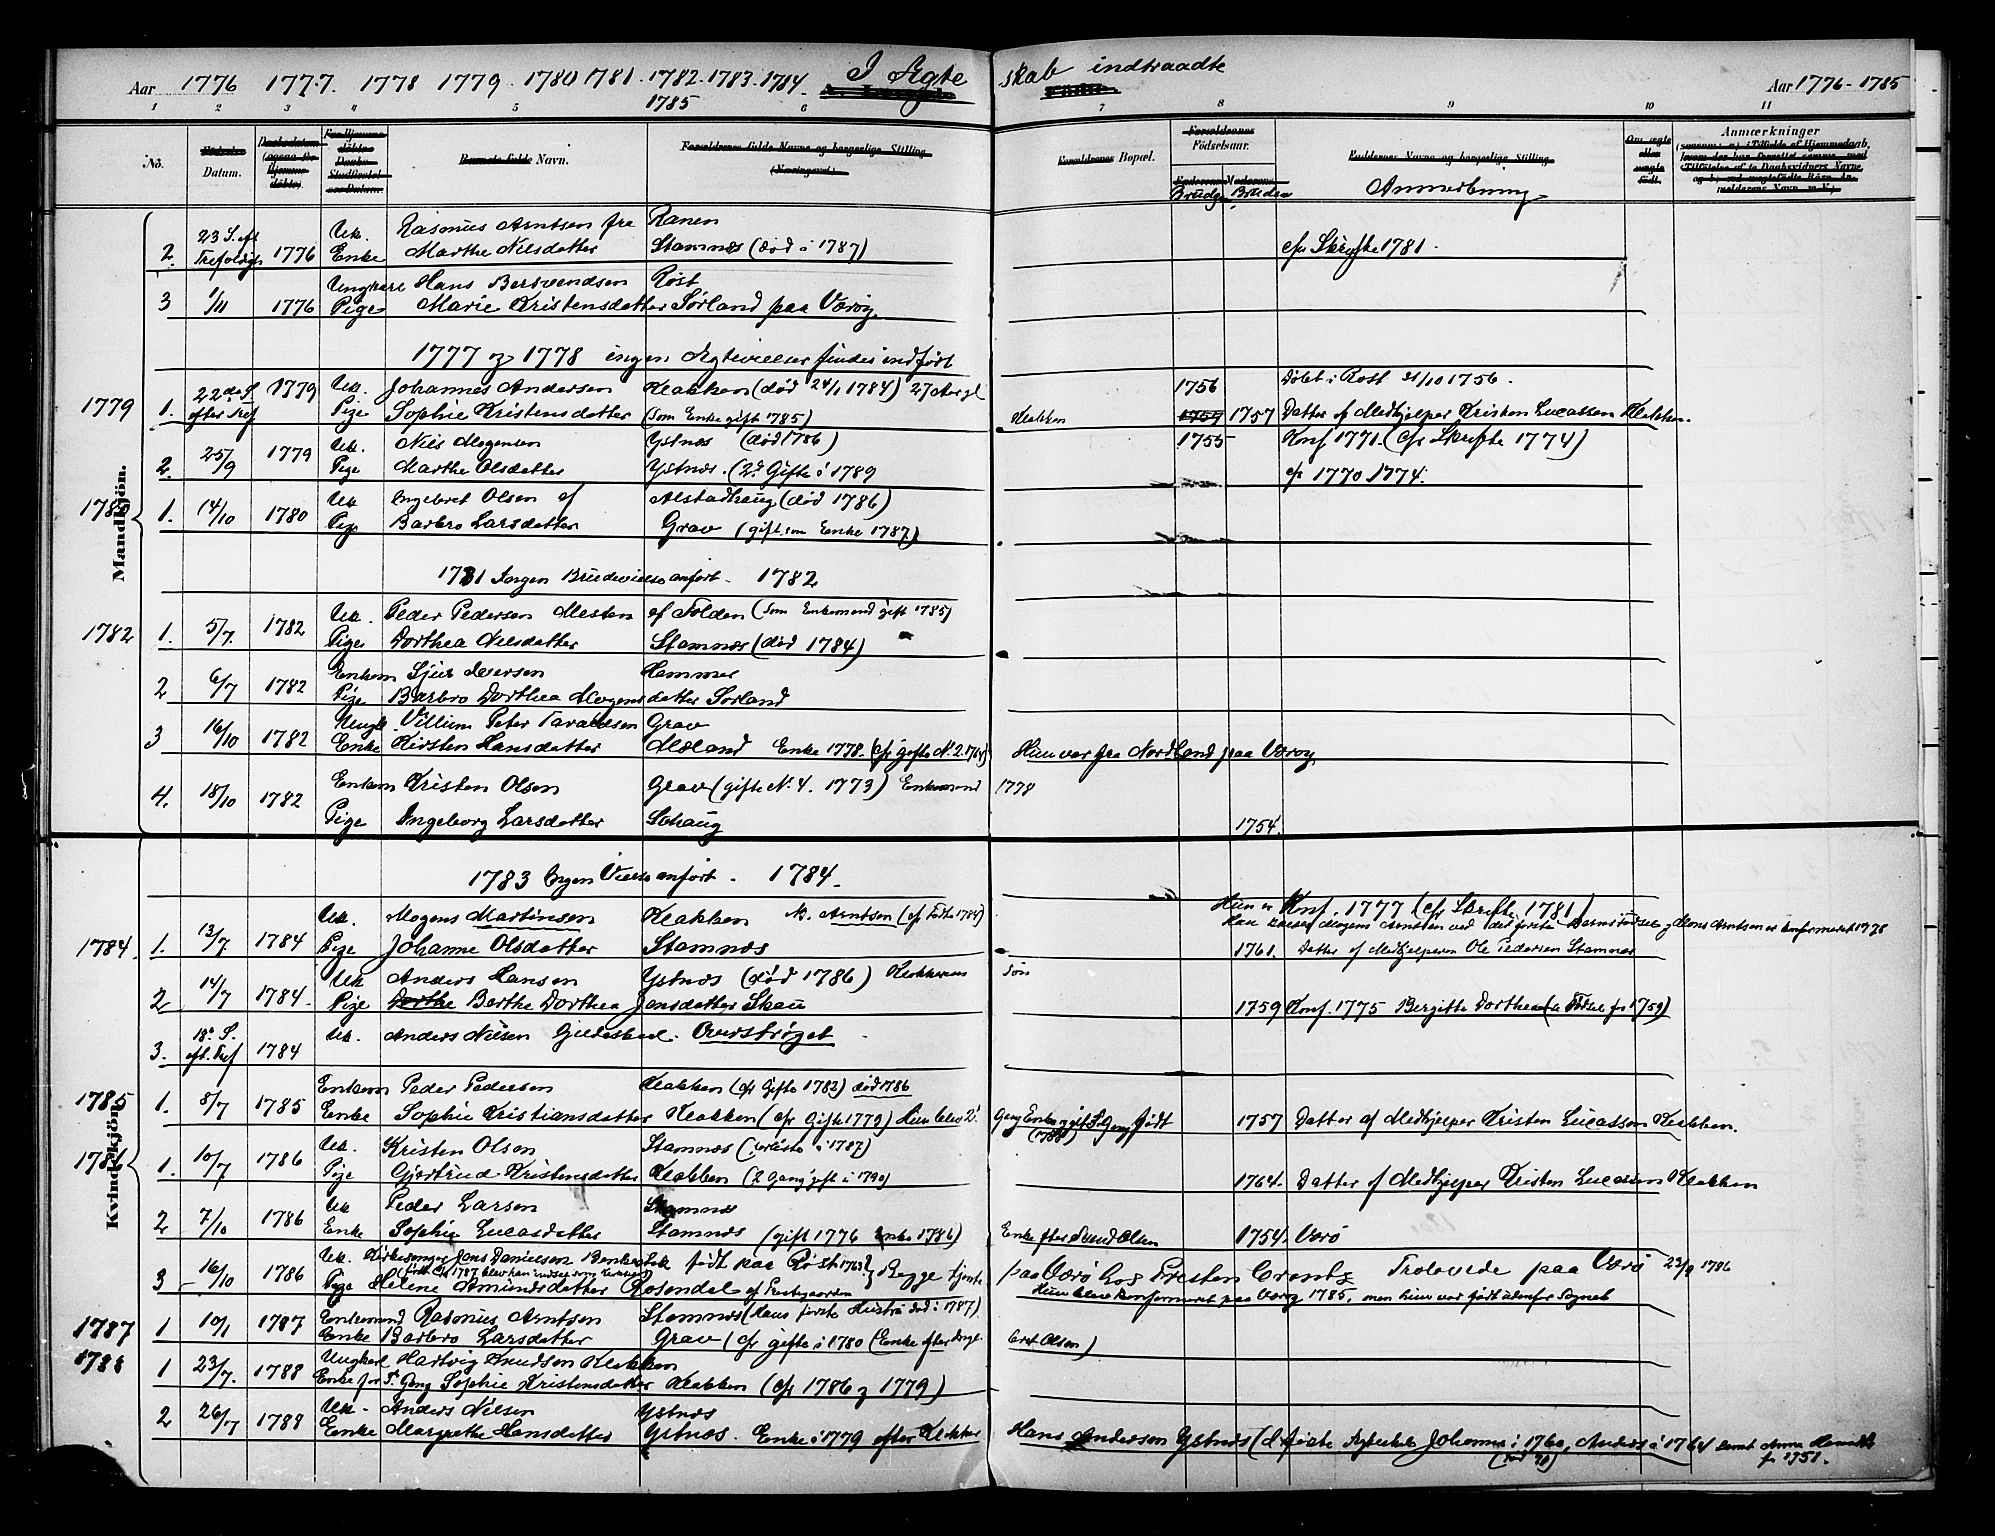 Aar 1776 1777. 1778 1779. 1780 1781. 1782. 1783. 1784. I Ægte
1785
skab indtraadte Aar 1776-1785
1 2 3 4 5 6 7 8 9 10 11
No. Datum. Navn.
Bopæl. Fødselsaar. Anmærkninger
Brudg. Bruden Anmerkning
2. 23 S. ef. Trefoldigh 1776 Uk. Rasmus Arntsen fra Ranen
Enke Marthe Nilsdatter Stamnæs (død i 1787) cfr Skrifte 1781.
3 1/11 1776 Ungkarl Hans Bersvendsen Røst
Pige Marie Kristensdatter Sørland paa Værøy
1777 og 1778 ingen Ægtevielser findes indført
1779
1. 22de S. efter Tref 1779 Uk. Johannes Andersen Klakken (død 24/1 1784) 27 Aar gl 1756 Døbt i Røst 31/10 1756.
Pige Sophie Kristensdatter (som Enke gift 1785) Klakken 1757 1757 Datter af Medhjelper Kristen Lucassen Klakken.
2. 25/9 1779 Uk. Nils Mogensen Ystnæs (død 1786) 1755 Konf 1771. (cfr Skrifte 1774)
Pige Marthe Olsdatter Ystnæs. (2d Gifte i 1789 cfr 1770. 1774.
1. 14/10 1780 Uk Ingebret Olsen af Alstadhaug (død 1786)
Pige Barbro Larsdatter Grav (gift som Enke 1787)
Mandkjön.
1781 Ingen Brudevielse anført. 1782
1782
1. 5/7. 1782 Uk. Peder Pedersen Mesten af Folden (som Enkemand gift 1785)
Pige Dorthea Nilsdatter Stamnæs (død 1784)
2 6/7 1782 Enkem Sjur Iversen Hammer
Pige Barbro Dorthea Mogensdatter Sørland
3 16/10 1782 Ungk. Villum Peter Taraldsen Grav
Enke Kirsten Hansdatter Mæland Enke 1778. (cfr gifte N. 2. 1764) Hun var fra Nordland paa Værøy
4. 18/10 1782 Enkem Kristen Olsen Grav (gifte N. 4. 1773) Enkemand 1778
Pige Ingeborg Larsdatter Schaug 1754.
1783 Ingen Vielse anført. 1784.
1784.
1. 13/7 1784 Uk. Mogens Martinsen Klakken M. Arntsen (cf Fødte 1784) Hun er Konf. 1777 (cfr Skrifte 1781)
Han kaldes Mogens Arntsen ved det første Barns Fødsel og Mons Arntsen er konfirmeret 1778
Pige Johanne Olsdatter Stamnæs 1761. Datter af Medhjelperen Ole Pedersen Stamnæs
2 14/7 1784. Uk Anders Hansen Ystnæs (død 1786) Klokkerens Søn
Pige Dorthe Berthe Dorthea Jensdatter Skau 1759 Konf. 1775 Bergitte Dorthea (se Fødsel for 1759)
3. 18e S. eft. Tref 1784 Uk. Anders Nilsen Gildeskaal. Overstrøget
1785
1. 8/7 1785 Enkem Peder Pedersen Klakken (cfr Gifte 1782) død 1786
Enke Sophie Kristiansdatter Klakken (cfr Gifte 1779) Hun blev 2. Gang Enke og gift 3. Gang (1788) født 1757 Datter af Medhjelper Kristen Lucassen Klakken.
Kvindekjön.
1. 10/7 1786 Uk. Kristen Olsen Stamnæs (forliste i 1787)
Pige Gjertrud Kristensdatter Klakken (2 Gang gift i 1790) 1764. Datter af Medhjelper Kristen Lucassen Klakken
2 7/10 1786 Uk Peder Larsen Stamnæs
Enke Sophie Lucasdatter Stamnæs (gift 1776 Enke 1786) Enke efter Svend Olsen 1754. Værø
3 16/10 1786 Uk. Kirkesanger Jens Danielsen Benkestok født paa Røst 1763? Begge tjente paa Værø hos Presten Crantz Trolovede paa Værø 23/9 1786
Pige Helene Amundsdatter Rosendal af Prestegaarden Hun blev konfirmeret paa Værøy 1785, men hun var født udenfor Sognet
1787
1 10/1 1787 Enkemand Rasmus Arntsen Stamnæs (Hans første Hustru død i 1787)
Enke Barbro Larsdatter Grav (cfr gifte i 1780 (Enke efter Ingebret Olsen)
1788
1 23/7. 1788 Ungkarl Hartvig Knudsen Klakken
Enke for 2. Gang Sophie Kristensdatter Klakken (cfr 1786 og 1779)
2 26/7 1788 Uk. Anders Nilsen Ystnæs
Enke Margrethe Hansdatter Ystnæs. Enke i 1779 efter Klokker Hans Andersen Ystnæs (Johanna i 1760, Anders i 1764 samt Anna f. 1751.